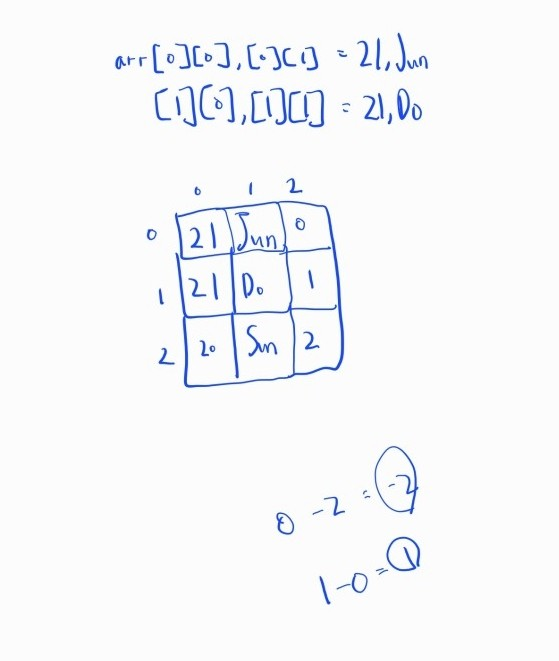 arr[0][0],[0][1] = 21,Jun
[1][0],[1][1] = 21,Do
0 1 2
0 21 Jun 0
1 21 Do 1
2 20 Sun 2
0 -2 = -2
1-0 = 1